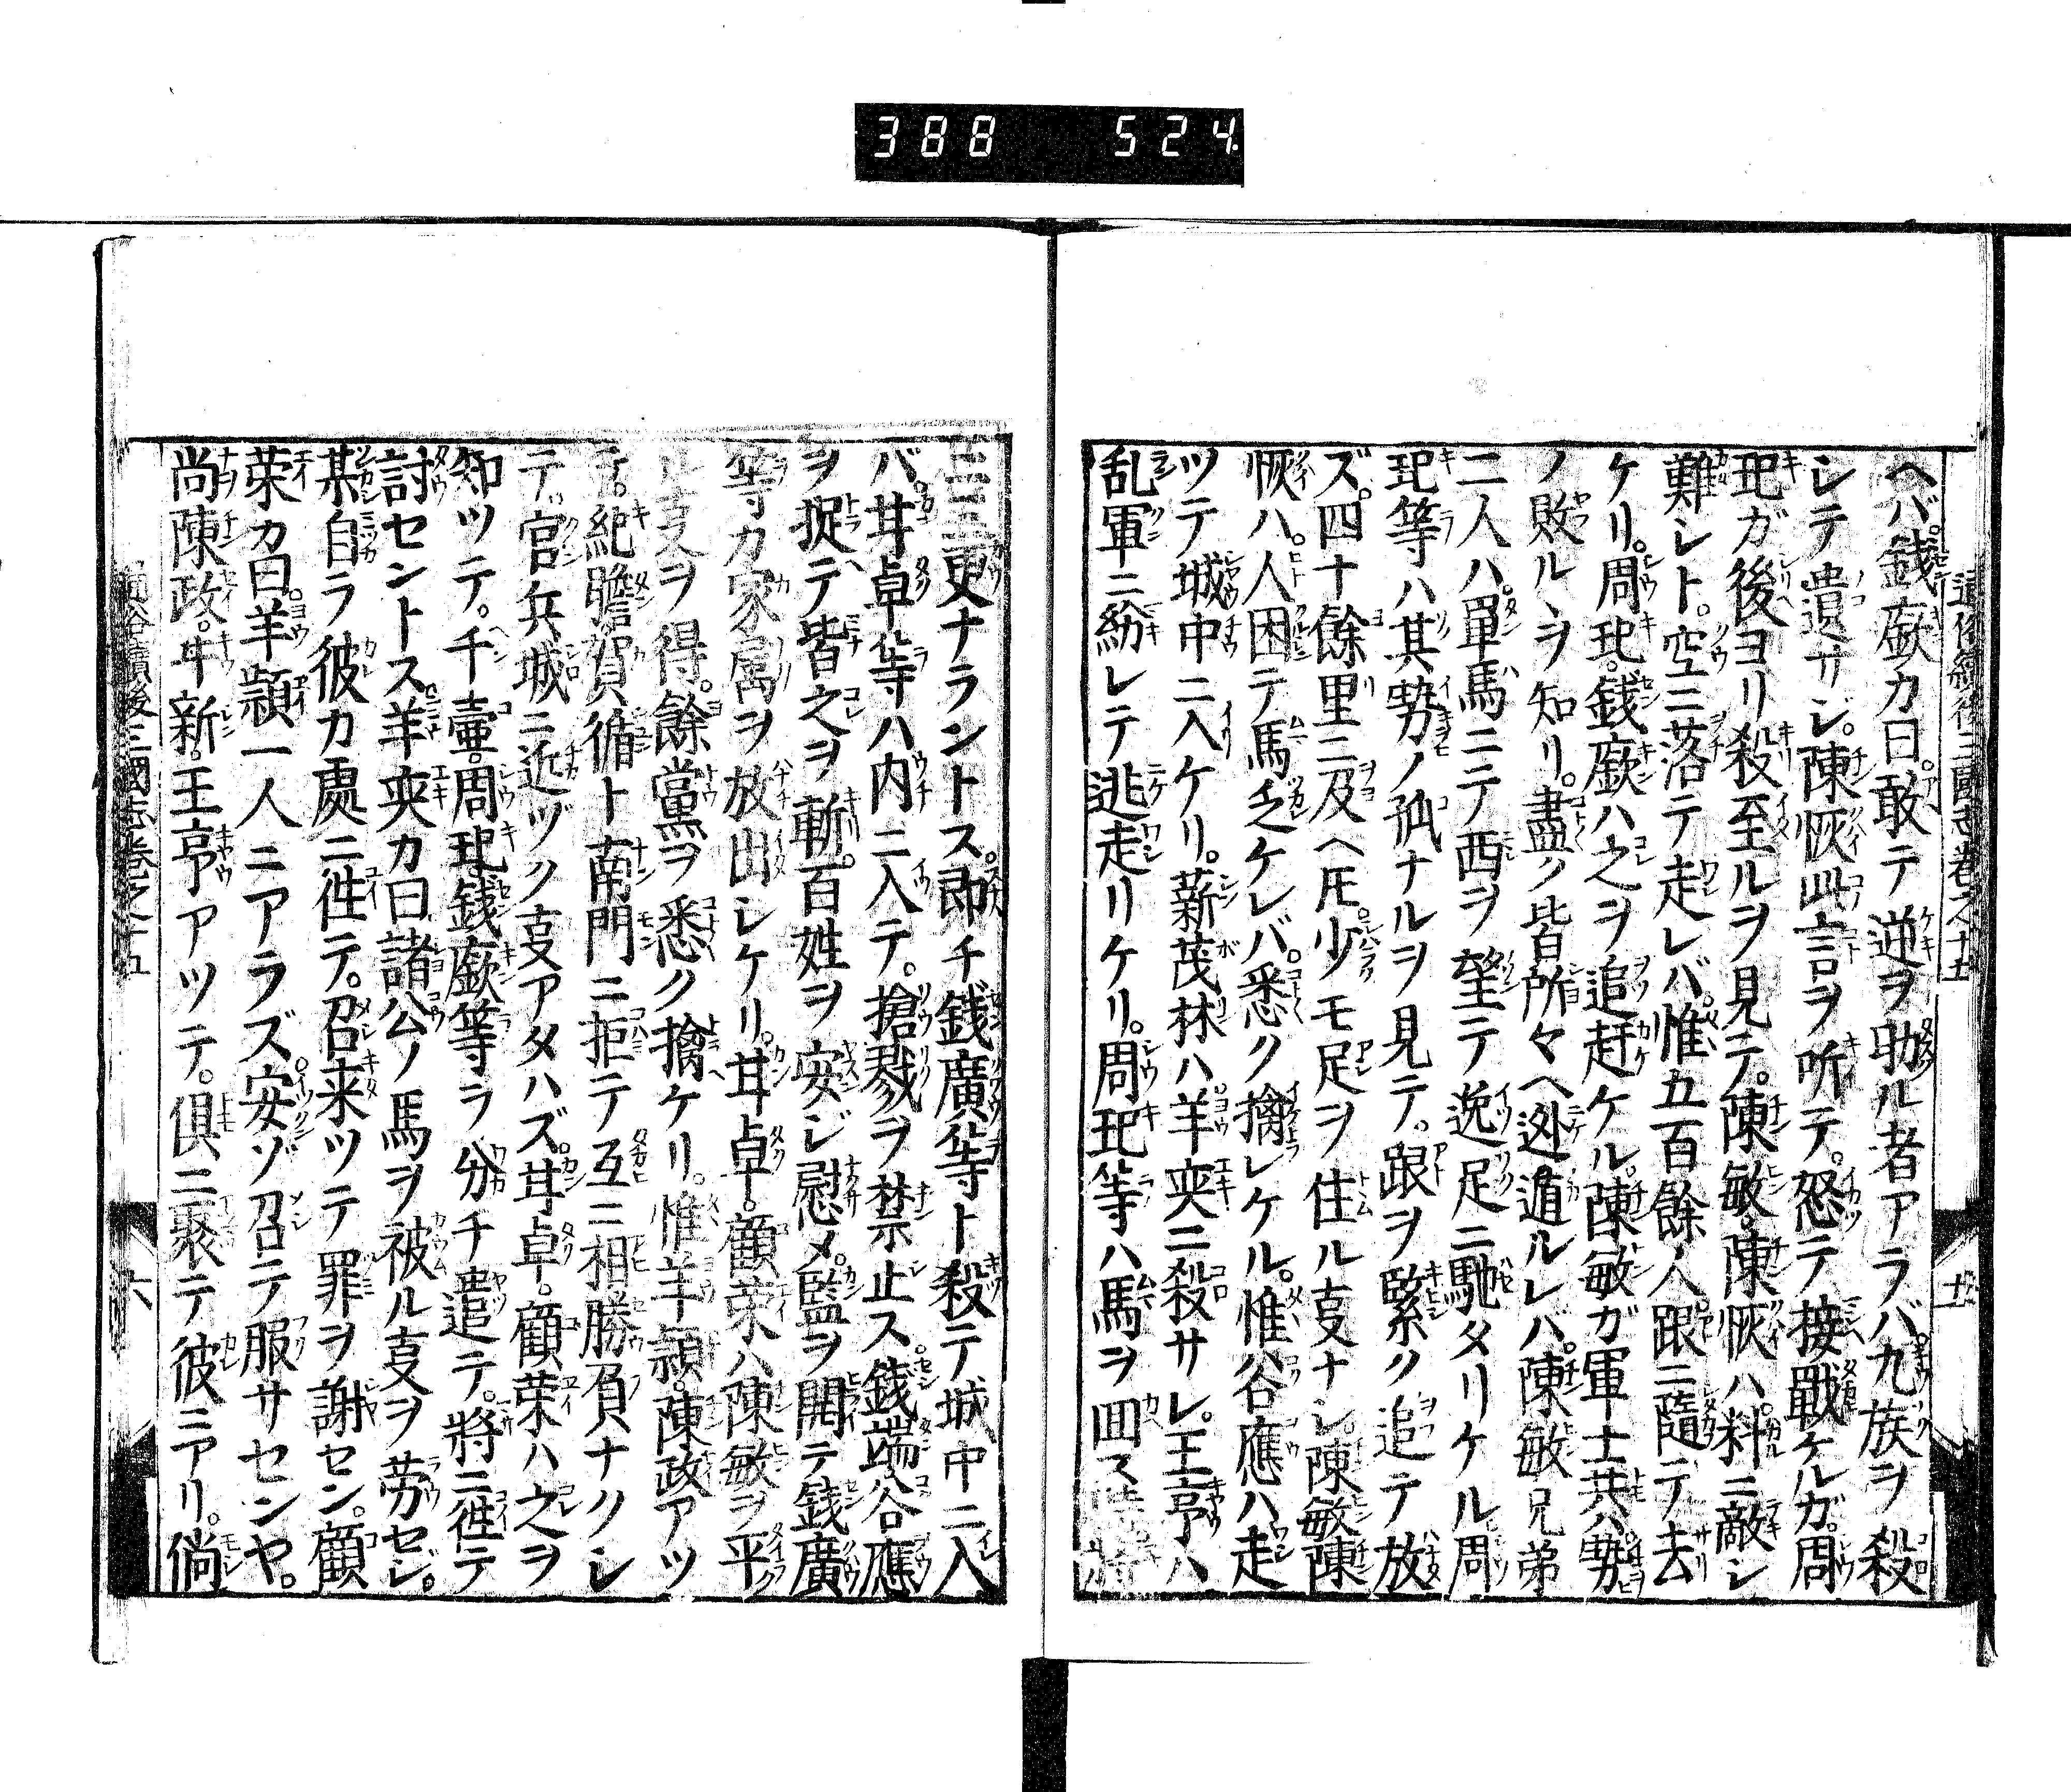 388 524.
通俗續後三國志卷之十五
ヘバ。錢廞カ曰。敢テ逆ヲ助ル者アラバ。九族ヲ殺
シテ遺サジ。陳恢此言ヲ听テ。怒テ接戰ケルガ。周
玘ガ後ヨリ殺至ルヲ見テ。陳敏。陳恢ハ。料ニ敵シ
難シト。空ニ落テ走レバ。惟五百餘人跟ニ隨テ去
ケリ。周玘。錢廞ハ之ヲ追赶ケル。陳敏ガ軍士共ハ。勢
ノ敗ルヲ知リ。盡ク皆所々ヘ迯遁ルレバ。陳敏兄弟
二人ハ。單馬ニテ西ヲ望テ逸足ニ馳タリケル。周
玘等ハ其勢ノ孤ナルヲ見テ。跟ヲ緊ク追テ放
ズ。四十餘里ニ及ヘ𪜈。少モ足ヲ住ル𫝆ナシ。陳敏陳
恢ハ。人困テ馬乏ケレバ。悉ク擒レケル。惟谷應ハ走
ツテ城中ニ入ケリ。薪茂林ハ羊奕ニ殺サレ。王亨ハ
乱軍ニ紛レテ逃走リケリ。周玘等ハ馬ヲ囬
三更ナラントス。即チ錢廣等ト殺テ城中ニ入
バ。甘卓等ハ内ニ入テ。搶戮ヲ禁止ス。錢端谷應
ヲ捉テ皆之ヲ斬。百姓ヲ安ジ慰メ。監ヲ開テ錢廣
等カ家属ヲ放出シケリ。甘卓。顧荣ハ陳敏ヲ平
ル𫝆ヲ得。餘黨ヲ悉ク擒ケリ。惟羊顈。陳政アツ
テ。紀瞻賀循ト南門ニ拒テ互ニ相勝負ナクシ
テ。官兵城ニ近ヅク𫝆アタハズ。甘卓。顧荣ハ之ヲ
知ツテ。卞壷。周玘。錢廞等ラ分チ遣テ。將ニ徃テ
討セントス。羊奕カ曰。諸公ノ馬ヲ被ル𫝆ヲ労セジ。
某自ラ彼カ處ニ徃テ。召来ツテ罪ヲ謝セン。顧
荣カ曰。羊顈一人ニアラズ。安ゾ召テ服サセンヤ。
尚陳政。牛新。王亨アツテ。俱ニ聚テ彼ニアリ。倘
通俗續後三國志卷之十五
六